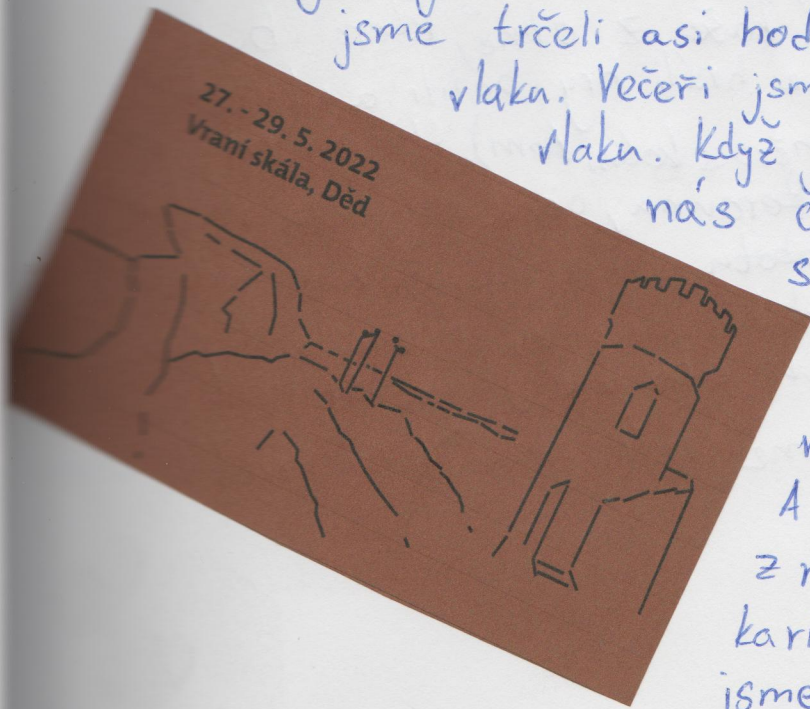 jsme trčeli asi
vlaku. Večeři
vlaku. Když
nás
27. - 29. 5. 2022
Vraní skála, Děd
A
z
jsme